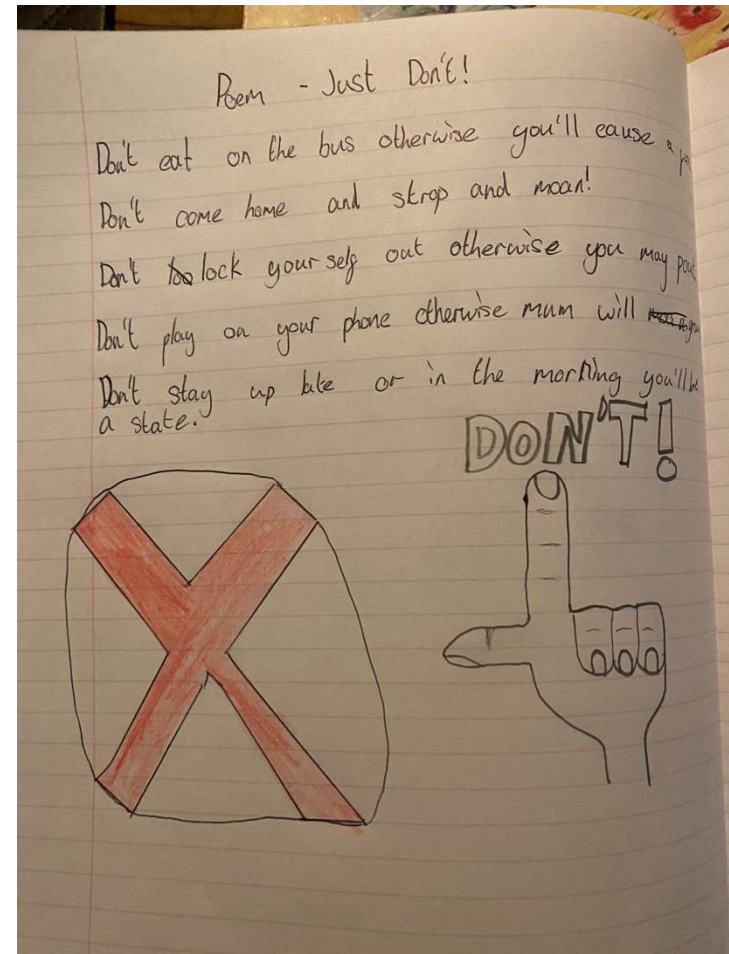 Poem - Just Don't!
Don't eat on the bus otherwise you'll cause a
Don't come home and strop and moan!
Don't lock your self out otherwise you may
Don't play on your phone otherwise mum will
Don't stay up late or in the morning you'll be
a state.
DON'T!